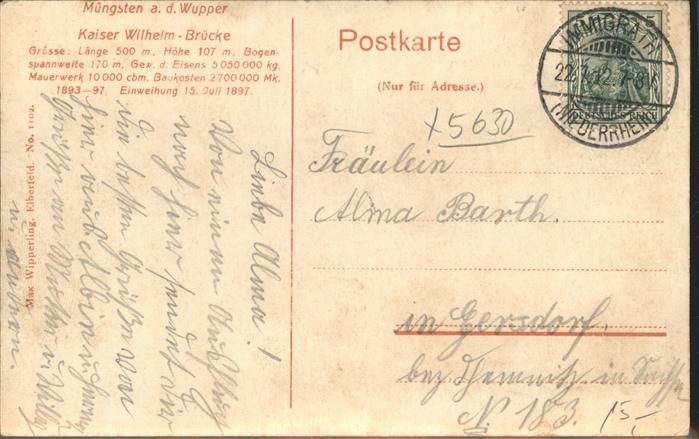 Müngsten a. d. Wupper
Kaiser Wilhelm-Brücke
Grösse: Länge 500 m, Höhe 107 m, Bogen-
spannweite 170 m, Gew. d. Eisens 5 050 000 kg,
Mauerwerk 10 000 cbm, Baukosten 2 700 000 Mk.
1893–97. Einweihung 15. Juli 1897.
Max Wipperling, Elberfeld. No. 1102.
Liebe Alma!
Von einem Ausflug
nach hier sendet Dir
die besten Grüße von
hier aus Albin u
Grüßen an Mutter u Willy
u
Postkarte
(Nur für Adresse.)
x 5630
Fräulein
Alma Barth.
in Gersdorf.
bez Chemnitz in Sachsen
N. 183.
15,-
5
DEUTSCHES REICH
IMMIGRATH
22.7.12.7-8
(NIEDERRHEIN)